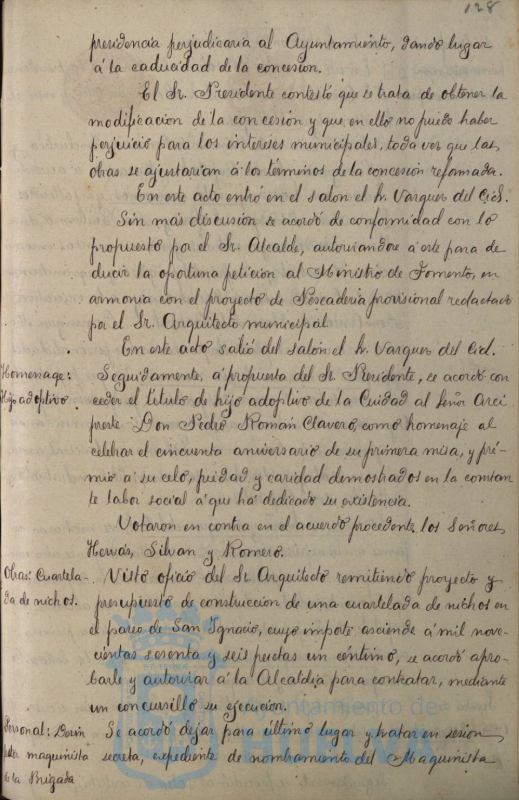 128
presidencia perjudicaria al Ayuntamiento, dando lugar
á la caducidad de la concesion.
El Sr. Presidente contestó que se trata de obtener la
modificacion de la concesión y que en ello no puede haber
perjuicio para los intereses municipales, toda vez que las
obras se ajustarian á los términos de la concesión reformada.
En este acto entró en el salon el Sr. Vargues del Cid.
Sin más discusion se acordó de conformidad con lo
propuesto por el Sr. Alcalde, autorizandose á este para de
ducir la oportuna peticion al Ministro de Fomento, en
armonia con el proyecto de Pescaderia provisional redactado
por el Sr. Arquitecto municipal
En este acto salió del salon el Sr. Vargues del Cid.
Homenage:
Hijo adoptivo.
Seguidamente, á propuesta del Sr. Presidente, se acordó con
ceder el titulo de hijo adoptivo de la Cuidad al Señor Arci
preste Don Pedro Román Clavero, como homenaje al
celebrar el cincuenta aniversario de su primera misa, y pré-
mio á su celo, piedad y caridad demostrados en la constan
te labor social á que há dedicado su existencia.
Votaron en contra en el acuerdo procedente los Señores,
Hervás, Silvan y Romero.
Obras: Cuartela-
da de nichos.
Visto oficio del Sr. Arquitecto remitiendo proyecto y
presupuesto de construccion de una cuartelada de nichos en
el paseo de San Ignacio, cuyo impote asciende á mil nove-
cientas sesenta y seis pesetas un céntimo, se acordó apro-
barle y autorizar á la Alcaldia para contratar, mediante
un concursillo su ejecucion.
Personal:
maquinista
de la Brigada
Se acordó dejar para último lugar y tratar en sesion
secreta, expediente de nombramiento del Maquinista
Ayuntamiento de
HUELVA